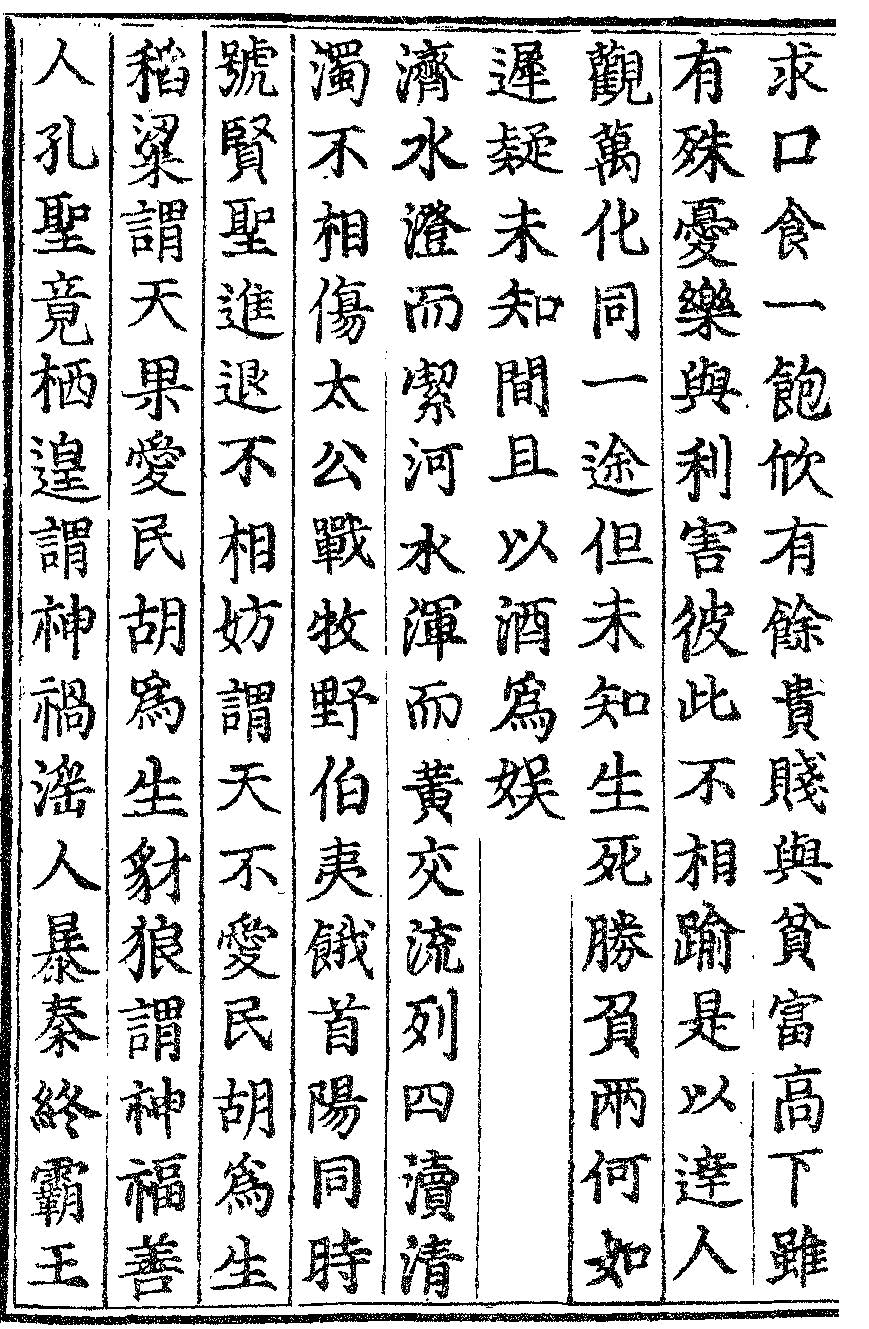 求口食一飽欣有餘貴賤與貧富高下雖
有殊憂樂與利害彼此不相踰是以達人
觀萬化同一途但未知生死勝負兩何如
遲疑未知間且以酒爲娱
濟水澄而潔河水渾而黃交流列四瀆清
濁不相傷太公戰牧野伯夷餓首陽同時
號賢聖進退不相妨謂天不愛民胡爲生
稻粱謂天果愛民胡爲生豺狼謂神福善
人孔聖竟栖遑謂神禍淫人暴秦終霸王